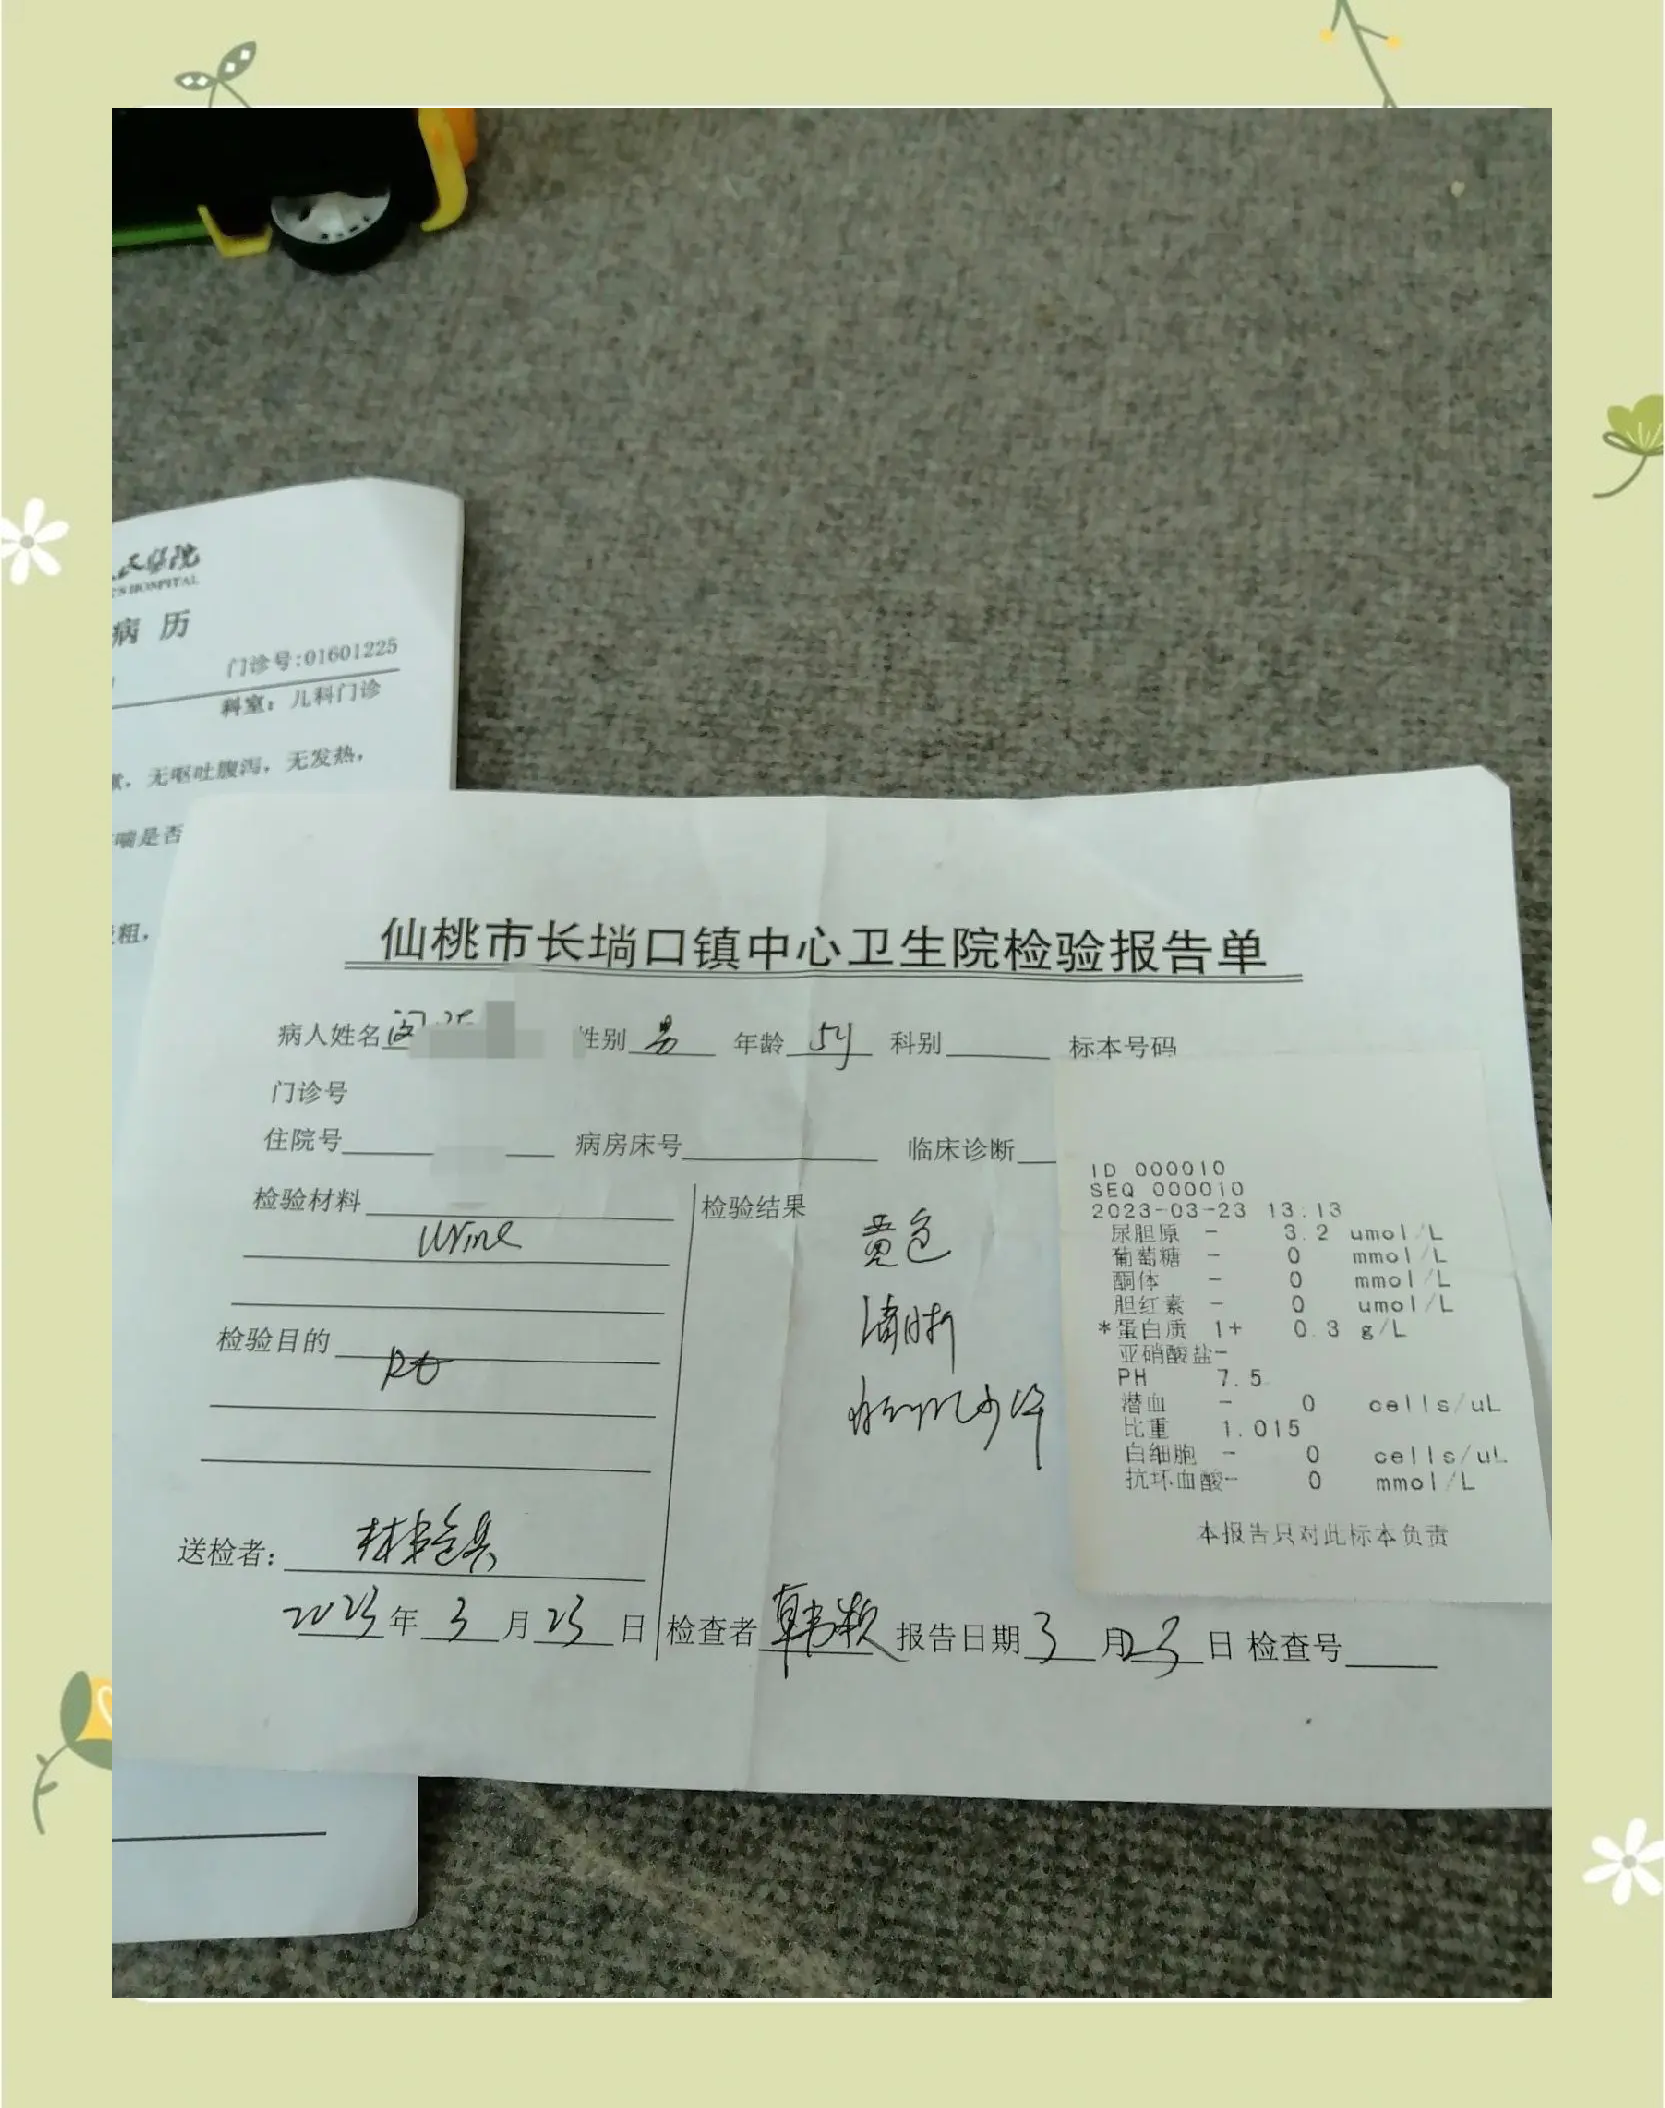 HOSPITAL
病 历
门诊号:01601225
科室：儿科门诊
无呕吐腹泻，无发热，
喘是否
粗，
仙桃市长埫口镇中心卫生院检验报告单
病人姓名 性别 男 年龄 5y 科别 标本号码
门诊号
住院号 病房床号 临床诊断
检验材料 urine
检验目的 Rt
检验结果
黄色
清晰
ID 000010
SEQ 000010
2023-03-23 13:13
尿胆原 - 3.2 umol/L
葡萄糖 - 0 mmol/L
酮体 - 0 mmol/L
胆红素 - 0 umol/L
*蛋白质 1+ 0.3 g/L
亚硝酸盐-
PH 7.5
潜血 - 0 cells/uL
比重 1.015
白细胞 - 0 cells/uL
抗坏血酸- 0 mmol/L
本报告只对此标本负责
送检者：
2023年 3 月 23 日 检查者 韩颖 报告日期 3 月 23 日 检查号